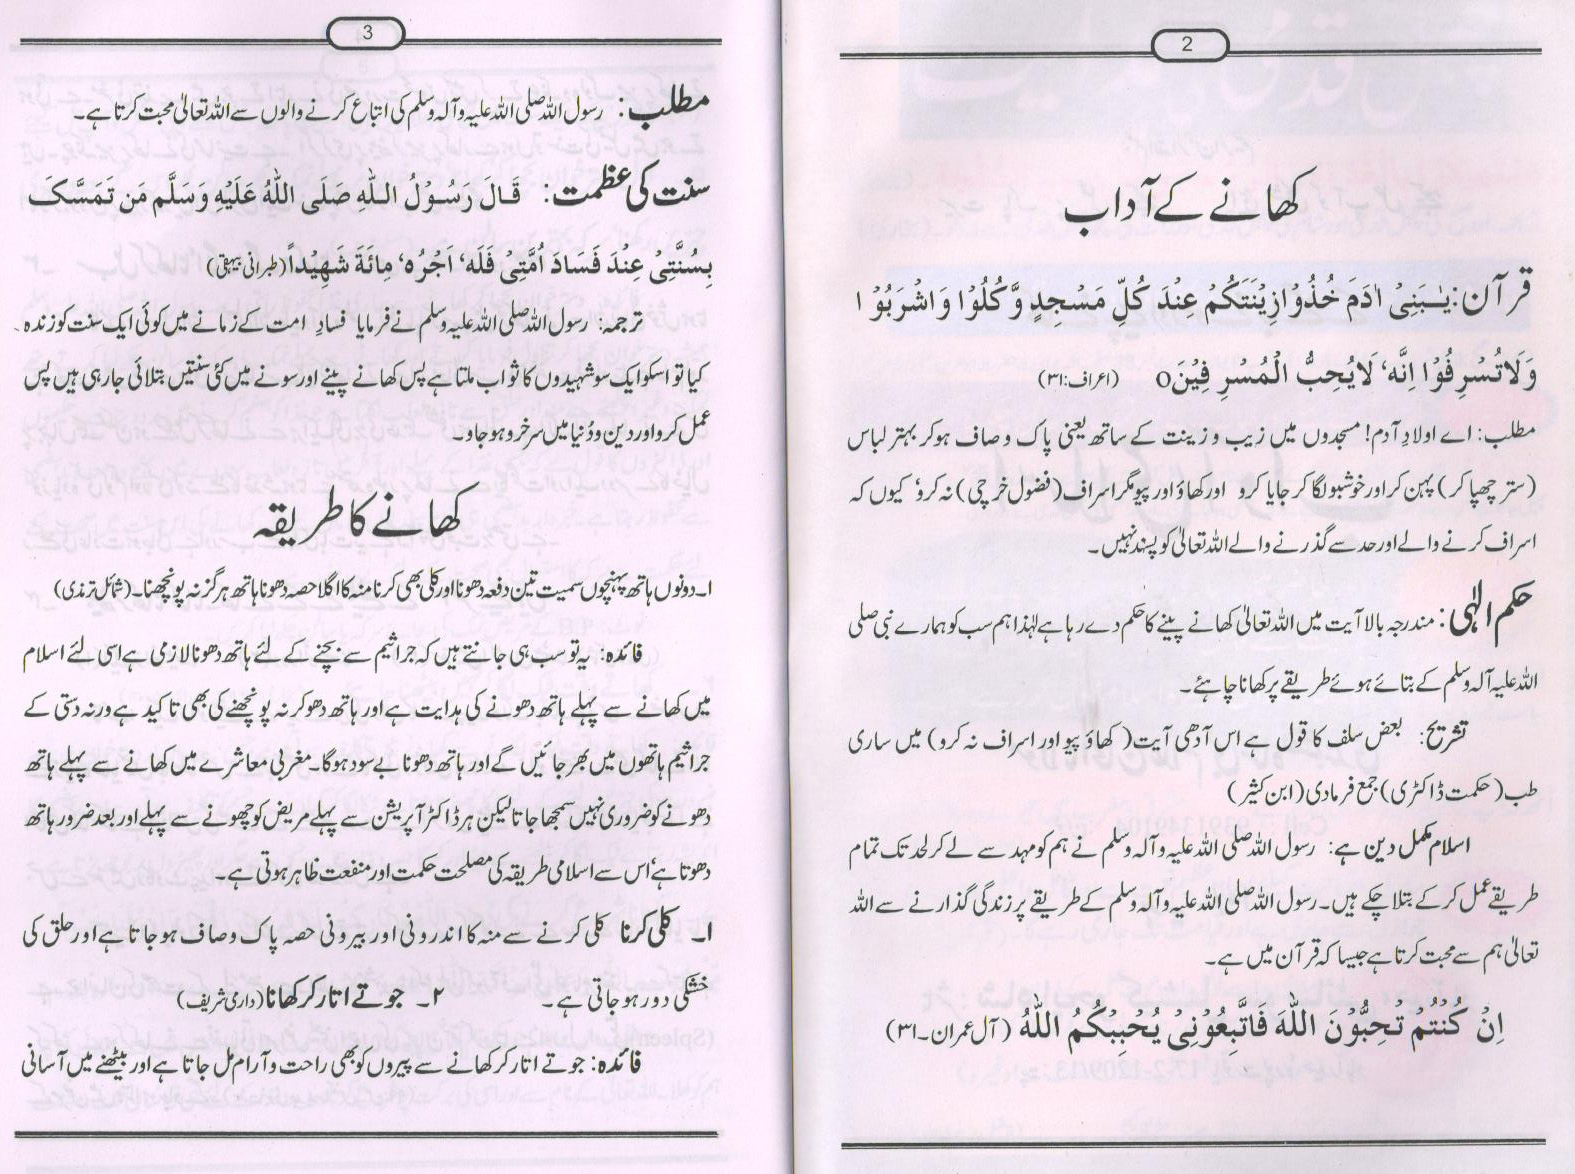 2
کھانے کے آداب
قرآن: یٰبَنِیْ اٰدَمَ خُذُوْا زِیْنَتَکُمْ عِنْدَ کُلِّ مَسْجِدٍ وَّکُلُوْا وَاشْرَبُوْا
وَلَا تُسْرِفُوْا اِنَّہ' لَا یُحِبُّ الْمُسْرِفِیْنَ o (اعراف:۳۱)
مطلب: اے اولادِ آدم! مسجدوں میں زیب و زینت کے ساتھ یعنی پاک و صاف ہوکر بہتر لباس
(ستر چھپا کر) پہن کر اور خوشبو لگا کر جایا کرو اور کھاؤ اور پیو مگر اسراف (فضول خرچی) نہ کرو' کیوں کہ
اسراف کرنے والے اور حد سے گذرنے والے اللہ تعالیٰ کو پسند نہیں۔
حکم الٰہی: مندرجہ بالا آیت میں اللہ تعالیٰ کھانے پینے کا حکم دے رہا ہے لہٰذا ہم سب کو ہمارے نبی صلی
اللہ علیہ آلہ وسلم کے بتائے ہوئے طریقے پر کھانا چاہئے۔
تشریح: بعض سلف کا قول ہے اس آدھی آیت (کھاؤ پیو اور اسراف نہ کرو) میں ساری
طب (حکمت ڈاکٹری) جمع فرمادی (ابن کثیر)
اسلام مکمل دین ہے: رسول اللہ صلی اللہ علیہ وآلہ وسلم نے ہم کو مہد سے لے کر لحد تک تمام
طریقے عمل کرکے بتلا چکے ہیں۔ رسول اللہ صلی اللہ علیہ وآلہ وسلم کے طریقے پر زندگی گذارنے سے اللہ
تعالیٰ ہم سے محبت کرتا ہے جیسا کہ قرآن میں ہے۔
اِنْ کُنْتُمْ تُحِبُّوْنَ اللّٰهَ فَاتَّبِعُوْنِیْ یُحْبِبْکُمُ اللّٰهُ (آل عمران۔۳۱)
3
مطلب: رسول اللہ صلی اللہ علیہ وآلہ وسلم کی اتباع کرنے والوں سے اللہ تعالیٰ محبت کرتا ہے۔
سنت کی عظمت: قَالَ رَسُوْلُ اللّٰهِ صَلَی اللّٰهُ عَلَیْهِ وَسَلَّم مَن تَمَسَّکَ
بِسُنَّتِیْ عِنْدَ فَسَادَ اُمَّتِیْ فَلَہ' اَجْرُہ' مِائَةَ شَهِیْداً (طبرانی بیہقی)
ترجمہ: رسول اللہ صلی اللہ علیہ وسلم نے فرمایا فسادِ امت کے زمانے میں کوئی ایک سنت کو زندہ
کیا تو اسکو ایک سو شہیدوں کا ثواب ملتا ہے پس کھانے پینے اور سونے میں کئی سنتیں بتلائی جارہی ہیں پس
عمل کرو اور دین و دُنیا میں سرخرو ہوجاو۔
کھانے کا طریقہ
۱۔ دونوں ہاتھ پہنچوں سمیت تین دفعہ دھونا اور کلی بھی کرنا منہ کا اگلا حصہ دھونا ہاتھ ہرگز نہ پونچھنا۔ (شمائل ترمذی)
فائدہ: یہ تو سب ہی جانتے ہیں کہ جراثیم سے بچنے کے لئے ہاتھ دھونا لازمی ہے اسی لئے اسلام
میں کھانے سے پہلے ہاتھ دھونے کی ہدایت ہے اور ہاتھ دھوکر نہ پونچھنے کی بھی تاکید ہے ورنہ دستی کے
جراثیم ہاتھوں میں بھر جائیں گے اور ہاتھ دھونا بے سود ہوگا۔ مغربی معاشرے میں کھانے سے پہلے ہاتھ
دھونے کو ضروری نہیں سمجھا جاتا لیکن ہر ڈاکٹر آپریشن سے پہلے مریض کو چھونے سے پہلے اور بعد ضرور ہاتھ
دھوتا ہے' اس سے اسلامی طریقہ کی مصلحت حکمت اور منفعت ظاہر ہوتی ہے۔
۱۔ کلی کرنا کلی کرنے سے منہ کا اندرونی اور بیرونی حصہ پاک و صاف ہوجاتا ہے اور حلق کی
خشکی دور ہوجاتی ہے۔ ۲۔ جوتے اتار کر کھانا (دارمی شریف)
فائدہ: جوتے اتار کر کھانے سے پیروں کو بھی راحت و آرام مل جاتا ہے اور بیٹھنے میں آسانی